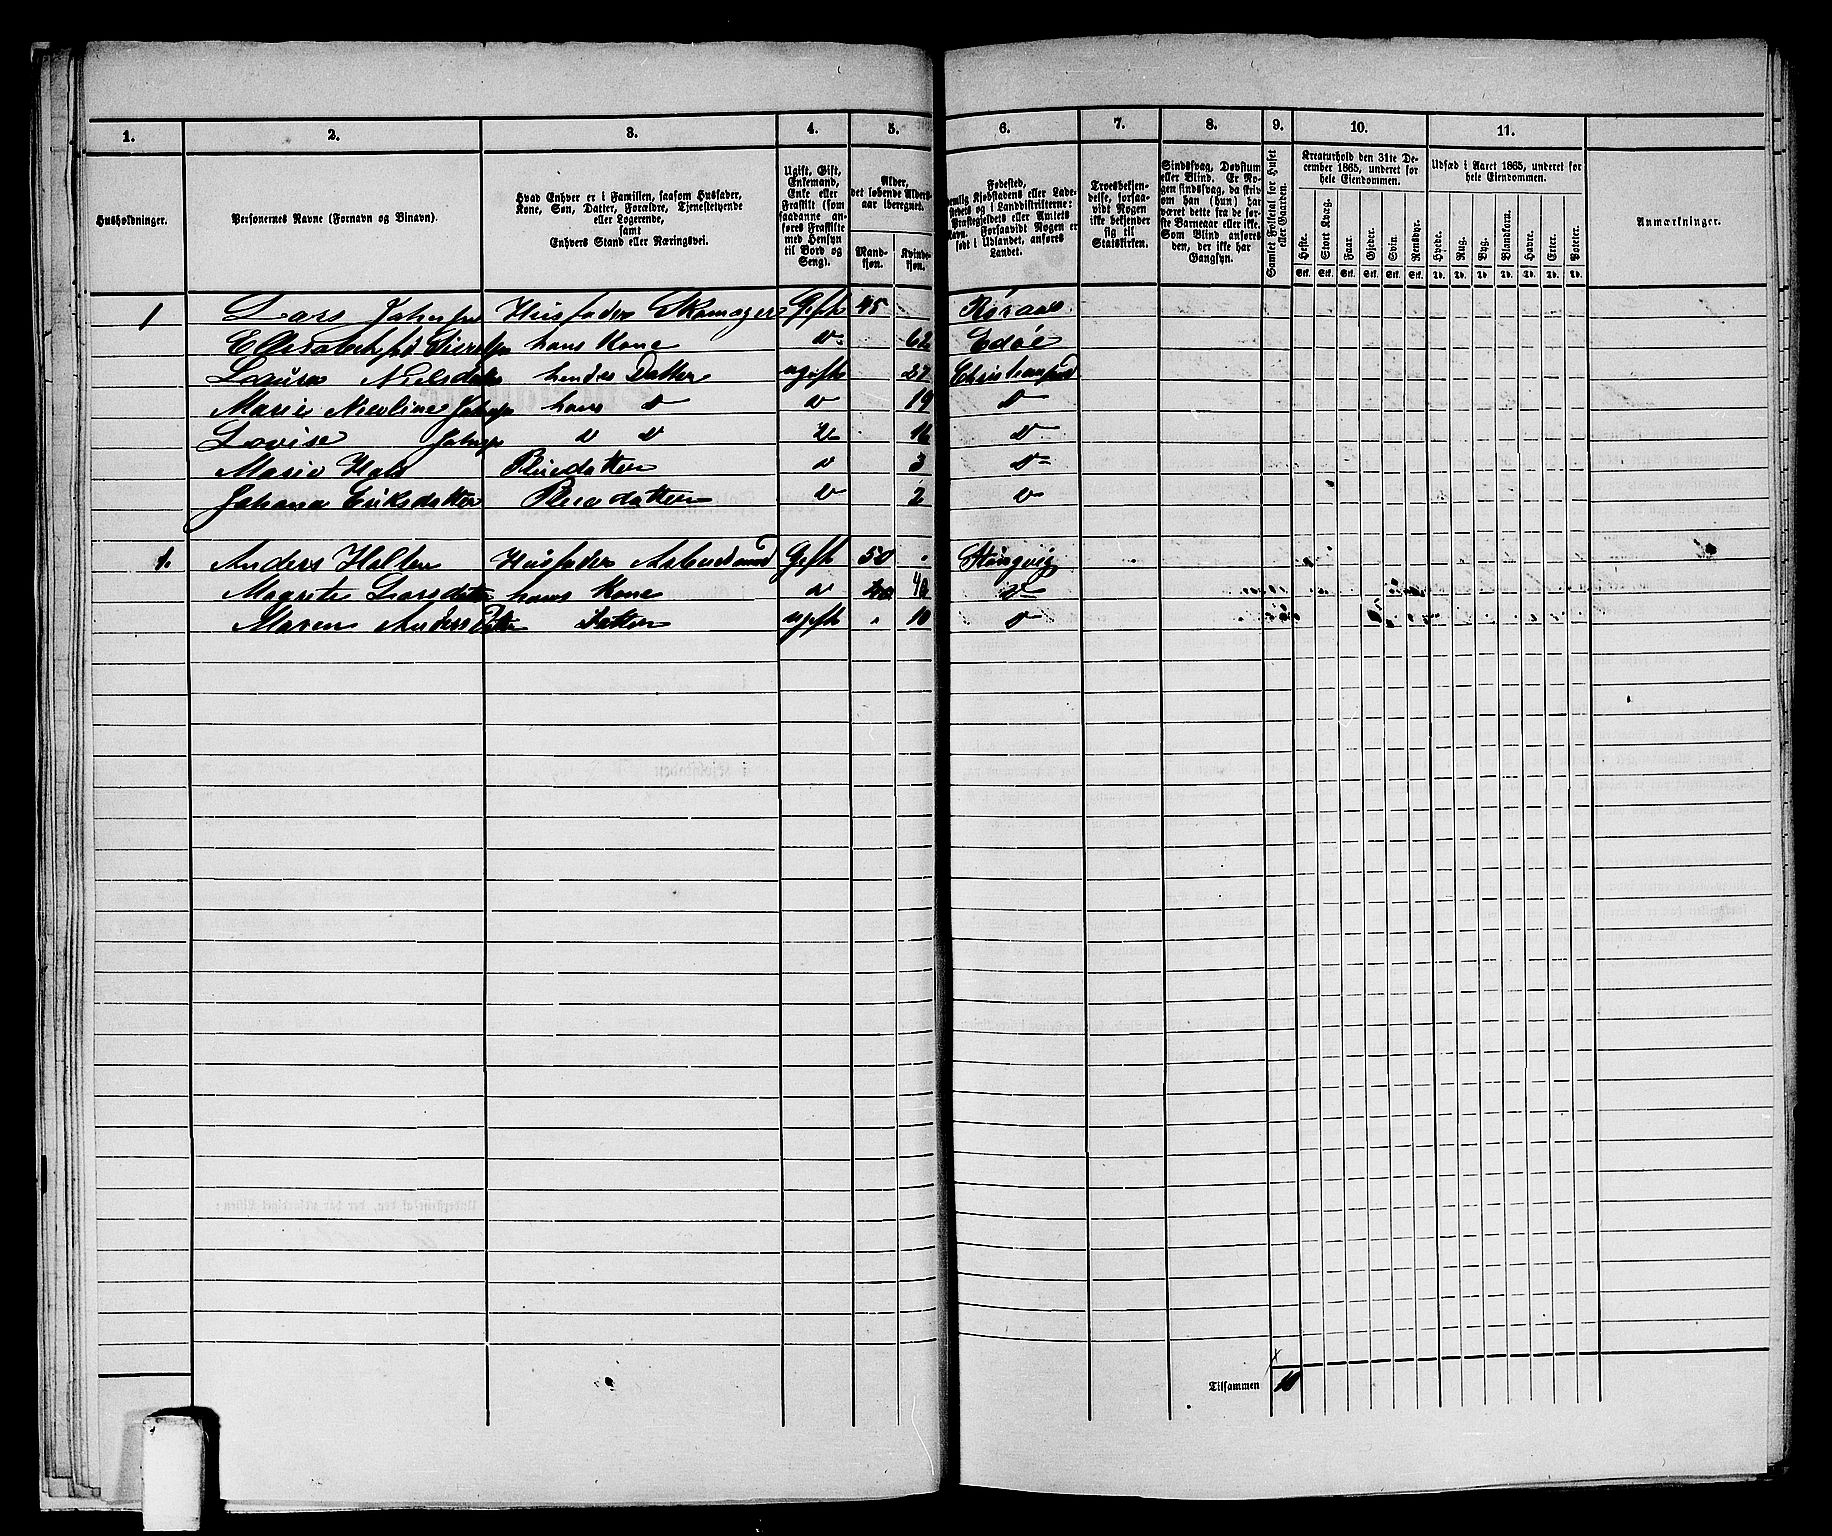 1. 2. 3. 4. 5. 6. 7. 8. 9. 10. 11.
Husholdninger.
Personernes Navne (Fornavn og Binavn).
Hvad Enhver er i Familien, saasom Husfader,
Kone, Søn, Datter, Forældre, Tjenestetyende
eller Logerende,
samt
Enhvers Stand eller Næringsvei.
Ugift, Gift,
Enkemand,
Enke eller
Fraskilt (som
saadanne an-
føres Fraskilte
med Hensyn
til Bord og
Seng).
Alder,
det løbende Alders-
aar iberegnet.
Mand-
kjøn.
Kvinde-
kjøn.
Fødested,
nemlig Kjøbstadens eller Lade-
stedets og i Landdistrikterne:
Præstegjeldets eller Amtets
Navn. Forsaavidt Nogen er
født i Udlandet, anføres
Landet.
Troesbekjen-
delse, forsaa-
vidt Nogen
ikke bekjender
sig til
Statskirken.
Sindssvag, Døvstum
eller Blind. Er No-
gen sindssvag, da skriv
om han (hun) har
været dette fra de før-
ste Barneaar eller ikke.
Som Blind anføres
den, der ikke har
Gangsyn.
Samlet Folketal for Huset
eller Gaarden.
Kreaturhold den 31te De-
cember 1865, underet for
hele Eiendommen.
Heste. Stort Kvæg. Faar. Gjeder. Svin. Rensdyr.
Stk. Stk. Stk. Stk. Stk. Stk.
Udsæd i Aaret 1865, underet for
hele Eiendommen.
Hvede. Rug. Byg. Blandkorn. Havre. Erter. Poteter.
Td. Td. Td. Td. Td. Td. Td.
Anmærkninger.
1 Lars Husfader Skomager Gift 45 Røraas
hans Kone D 62 Edøe
Laura Nielsdatter hendes Datter ugift 27 Christiansund
Marie Nicoline hans D D 19 D
Lovise D D D 16 D
Marie Hals Pleiedatter D 3 D
Johana Eriksdatter Pleiedatter D 2 D
1. Anders Halten Husfader Arbeidsmand Gift 50 Stangvig
Marete Larsdatter hans Kone D 40 D
Maren Andersdatter Datter ugift 10 D
Tilsammen 10